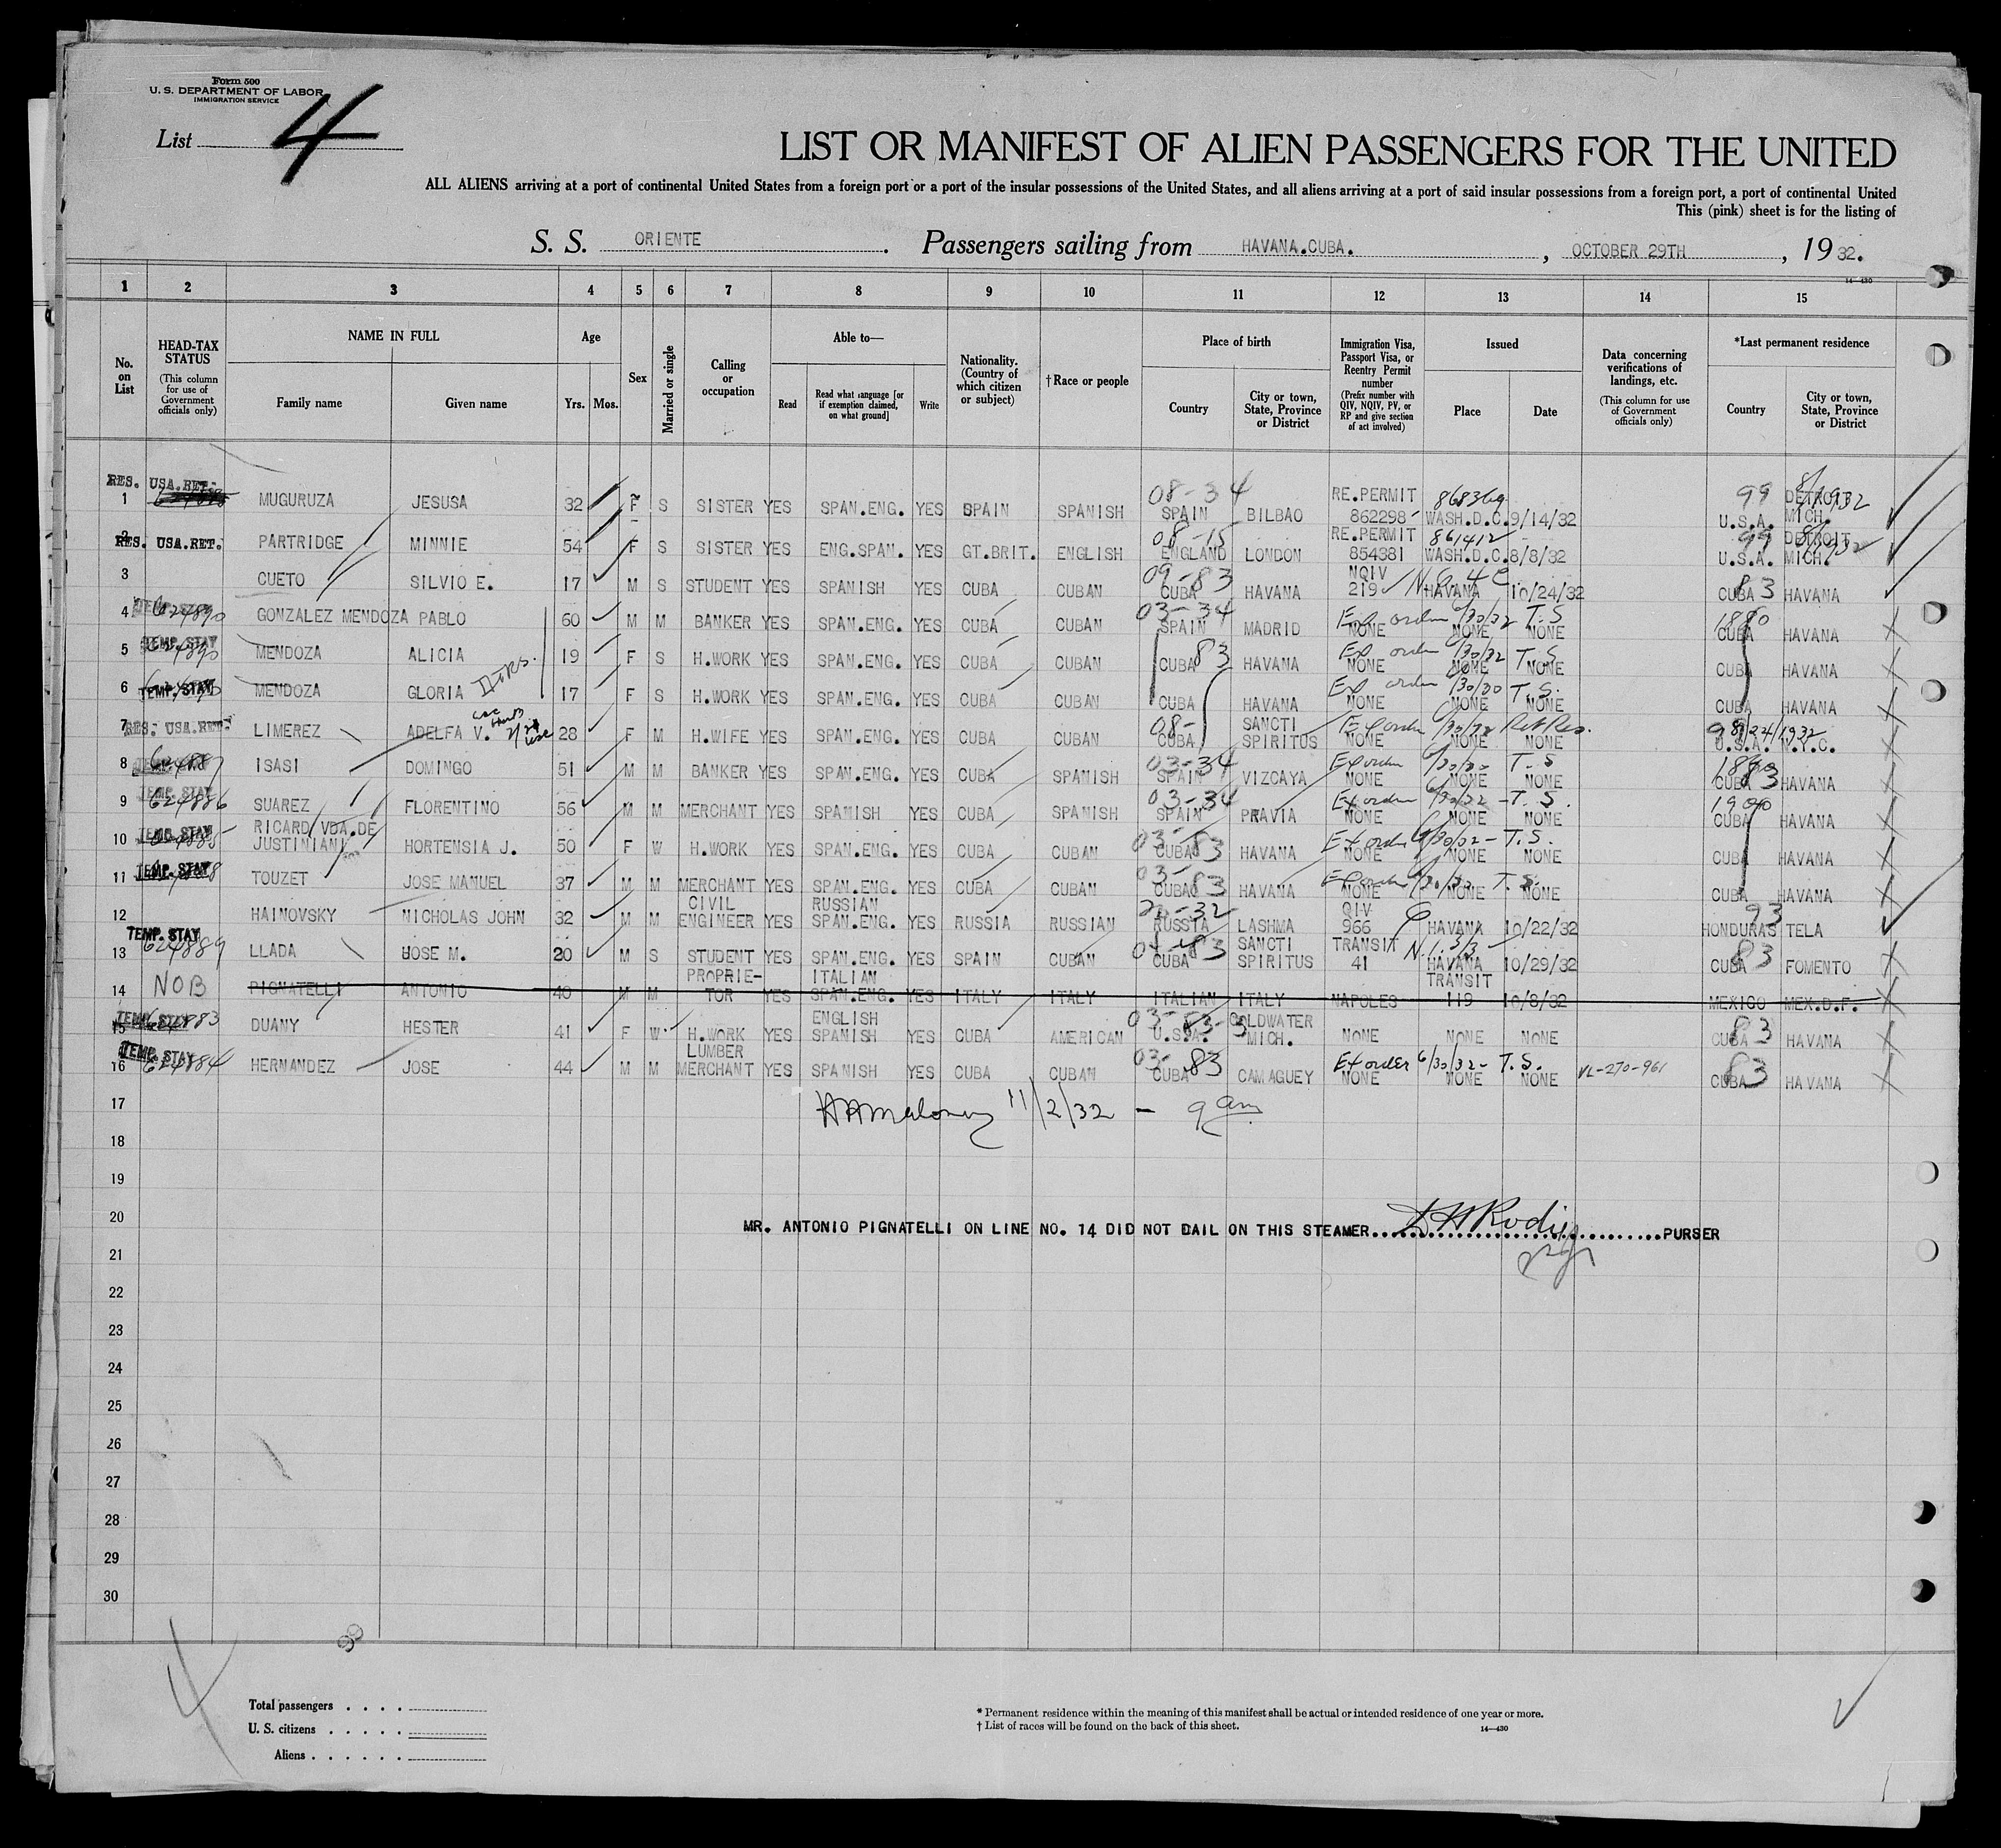 Form 500
U. S. DEPARTMENT OF LABOR
IMMIGRATION SERVICE
List 4
LIST OR MANIFEST OF ALIEN PASSENGERS FOR THE UNITED
ALL ALIENS arriving at a port of continental United States from a foreign port or a port of the insular possessions of the United States, and all aliens arriving at a port of said insular possessions from a foreign port, a port of continental United
This (pink) sheet is for the listing of
S. S. ORIENTE. Passengers sailing from HAVANA.CUBA. , OCTOBER 29TH , 1932.
14—430
1 2 3 4 5 6 7 8 9 10 11 12 13 14 15
No. on List
HEAD-TAX STATUS (This column for use of Government officials only)
NAME IN FULL Family name Given name
Age Yrs. Mos.
Sex
Married or single
Calling or occupation
Able to— Read Read what language [or if exemption claimed, on what ground] Write
Nationality. (Country of which citizen or subject)
†Race or people
Place of birth Country City or town, State, Province or District
Immigration Visa, Passport Visa, or Reentry Permit number (Prefix number with QIV, NQIV, PV, or RP and give section of act involved)
Issued Place Date
Data concerning verifications of landings, etc. (This column for use of Government officials only)
*Last permanent residence Country City or town, State, Province or District
1 RES. USA.RET. MUGURUZA JESUSA 32 F S SISTER YES SPAN.ENG. YES SPAIN SPANISH 08-34 SPAIN BILBAO RE.PERMIT 862298 868369 WASH.D.C. 9/14/32 99 U.S.A. DETROIT MICH.
2 RES. USA.RET. PARTRIDGE MINNIE 54 F S SISTER YES ENG.SPAN. YES GT.BRIT. ENGLISH 08-15 ENGLAND LONDON RE.PERMIT 854381 861412 WASH.D.C. 8/8/32 99 U.S.A. DETROIT MICH.
3 CUETO SILVIO E. 17 M S STUDENT YES SPANISH YES CUBA CUBAN 09-83 CUBA HAVANA NQIV 219 HAVANA 10/24/32 CUBA 83 HAVANA
4 TEMP. STAY 624890 GONZALEZ MENDOZA PABLO 60 M M BANKER YES SPAN.ENG. YES CUBA CUBAN 03-34 SPAIN MADRID Ex order 6/30/32 T.S NONE NONE NONE CUBA HAVANA
5 TEMP. STAY MENDOZA ALICIA 19 F S H.WORK YES SPAN.ENG. YES CUBA CUBAN CUBA 83 HAVANA Ex order 6/30/32 T.S NONE NONE NONE CUBA HAVANA
6 TEMP. STAY MENDOZA GLORIA 17 F S H.WORK YES SPAN.ENG. YES CUBA CUBAN CUBA HAVANA Ex order T.S. NONE NONE NONE CUBA HAVANA
7 RES. USA.RET. LIMEREZ ADELFA V. 28 F M H.WIFE YES SPAN.ENG. YES CUBA CUBAN 08- CUBA SANCTI SPIRITUS Ex order NONE NONE NONE U.S.A. N.Y.C.
8 TEMP. STAY ISASI DOMINGO 51 M M BANKER YES SPAN.ENG. YES CUBA SPANISH 03-34 SPAIN VIZCAYA Ex order T.S NONE NONE NONE CUBA 83 HAVANA
9 TEMP. STAY 624886 SUAREZ FLORENTINO 56 M M MERCHANT YES SPANISH YES CUBA SPANISH 03-34 SPAIN PRAVIA Ex order 6/30/32 - T.S. NONE NONE NONE 1900 CUBA HAVANA
10 TEMP. STAY RICARD VDA.DE JUSTINIANI HORTENSIA J. 50 F W H.WORK YES SPAN.ENG. YES CUBA CUBAN 03- CUBA 83 HAVANA Ex order 6/30/32 - T.S. NONE NONE NONE CUBA HAVANA
11 TEMP. STAY TOUZET JOSE MANUEL 37 M M MERCHANT YES SPAN.ENG. YES CUBA CUBAN 03- CUBA 83 HAVANA Ex order T.S. NONE NONE NONE CUBA HAVANA
12 HAINOVSKY NICHOLAS JOHN 32 M M CIVIL ENGINEER YES RUSSIAN SPAN.ENG. YES RUSSIA RUSSIAN RUSSIA LASHMA QIV 966 HAVANA 10/22/32 93 HONDURAS TELA
13 TEMP. STAY 624889 LLADA JOSE M. 20 M S STUDENT YES SPAN.ENG. YES SPAIN CUBAN CUBA 83 SANCTI SPIRITUS TRANSIT 41 HAVANA 10/29/32 CUBA 83 FOMENTO
14 NOB PIGNATELLI ANTONIO 40 M M PROPRIE-TOR YES ITALIAN SPAN.ENG. YES ITALY ITALY ITALIAN ITALY NAPOLES TRANSIT 119 10/8/32 MEXICO MEX.D.F.
15 TEMP. STAY DUANY HESTER 41 F W H.WORK YES ENGLISH SPANISH YES CUBA AMERICAN 03-83-3 U.S.A. COLDWATER MICH. NONE NONE NONE CUBA 83 HAVANA
16 TEMP. STAY 624884 HERNANDEZ JOSE 44 M M LUMBER MERCHANT YES SPANISH YES CUBA CUBAN 03-83 CUBA CAMAGUEY Ex order 6/30/32 - T.S. NONE NONE NONE VL-270-961 CUBA 83 HAVANA
17 11/2/32 — 9 am
18
19
20 MR. ANTONIO PIGNATELLI ON LINE NO. 14 DID NOT DAIL ON THIS STEAMER PURSER
21
22
23
24
25
26
27
28
29
30
Total passengers
U. S. citizens
Aliens
* Permanent residence within the meaning of this manifest shall be actual or intended residence of one year or more.
† List of races will be found on the back of this sheet.
14—430